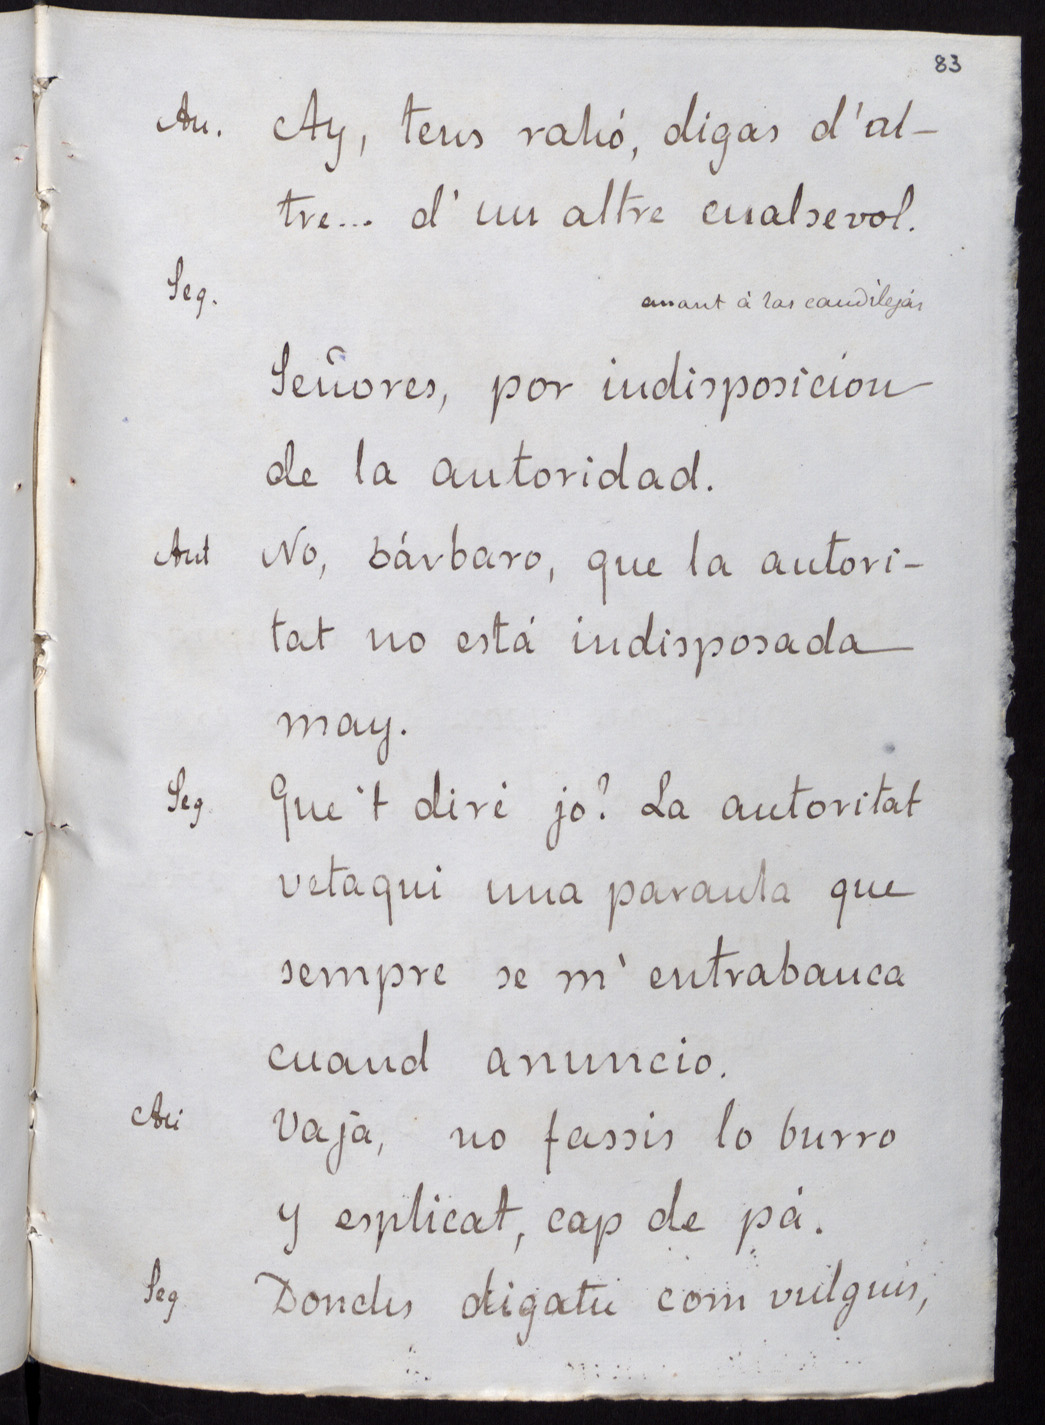 83
Au. Ay, tens rahó, digas d'al-
tre... d'un altre cualsevol.
Seg.
anant á las candilejas
Señores, por indisposicion
de la autoridad.
Aut No, bárbaro, que la autori-
tat no está indisposada
may.
Seg Que't diré jo? La autoritat
vetaqui una paraula que
sempre se m'entrabanca
cuand anuncio.
Au Vaja, no fassis lo burro
y esplicat, cap de pá.
Seg Donchs digatu com vulguis,